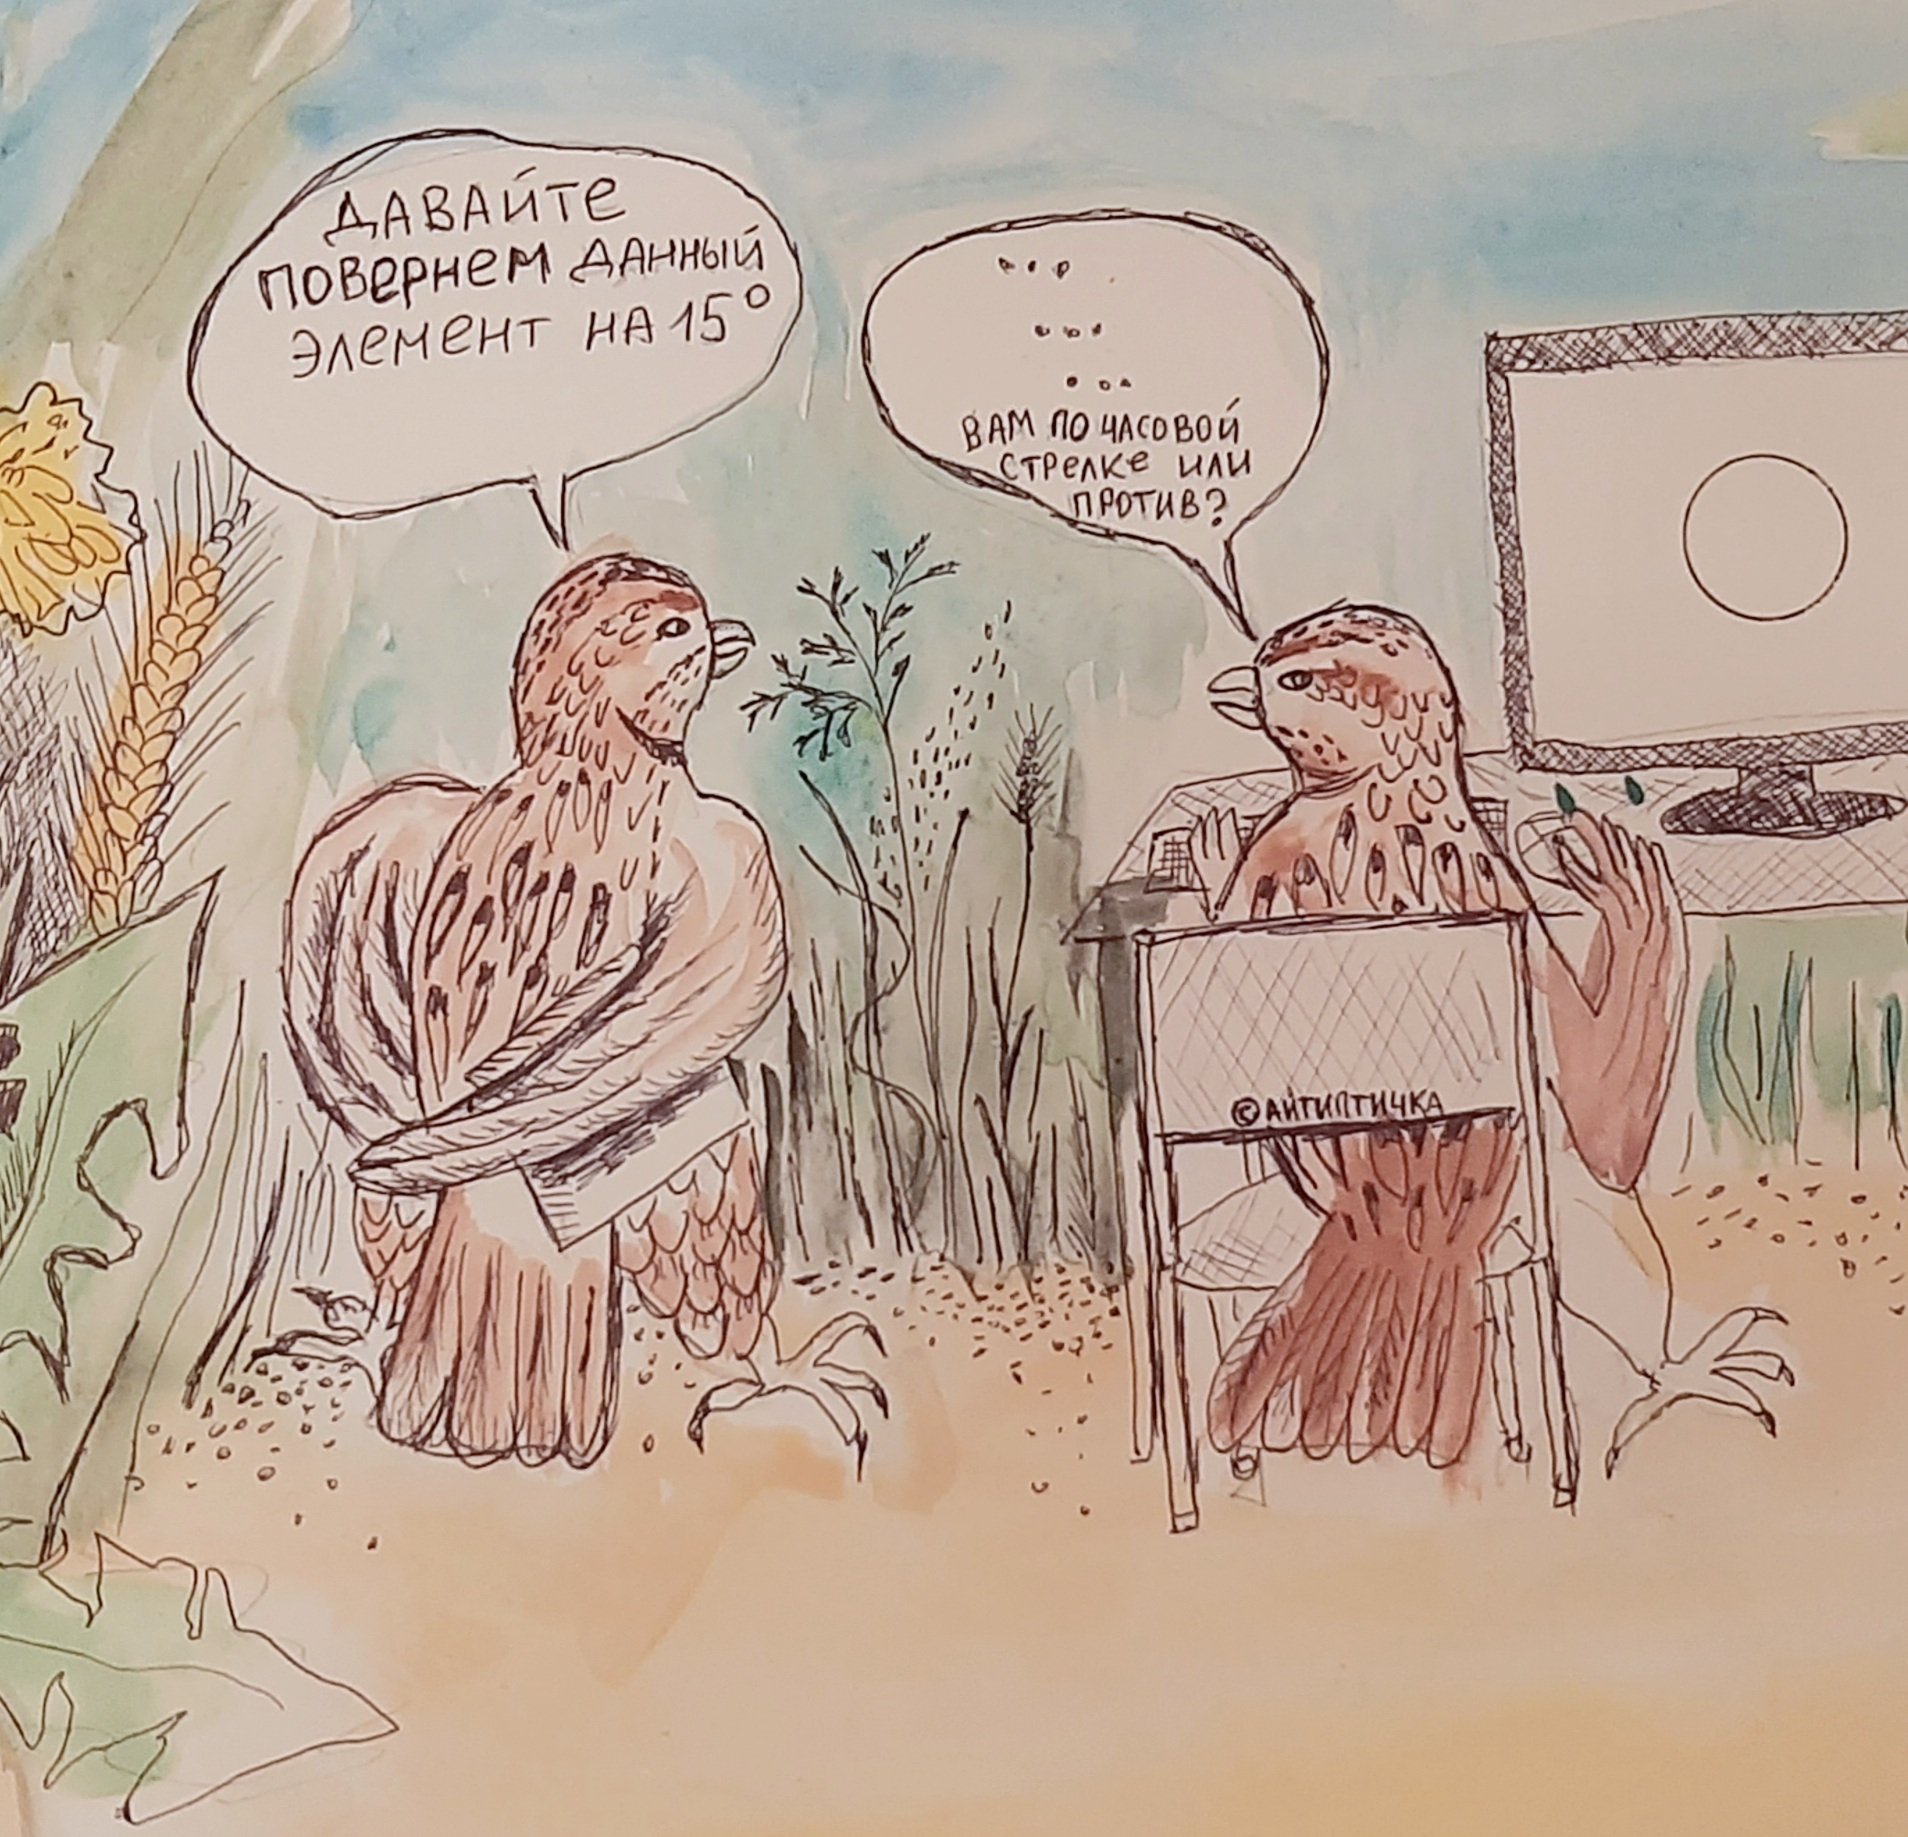 ДАВАЙТЕ
ПОВЕРНЕМ ДАННЫЙ
ЭЛЕМЕНТ НА 15°
...
...
...
ВАМ ПО ЧАСОВОЙ
СТРЕЛКЕ ИЛИ
ПРОТИВ?
©АЙТИПТИЧКА